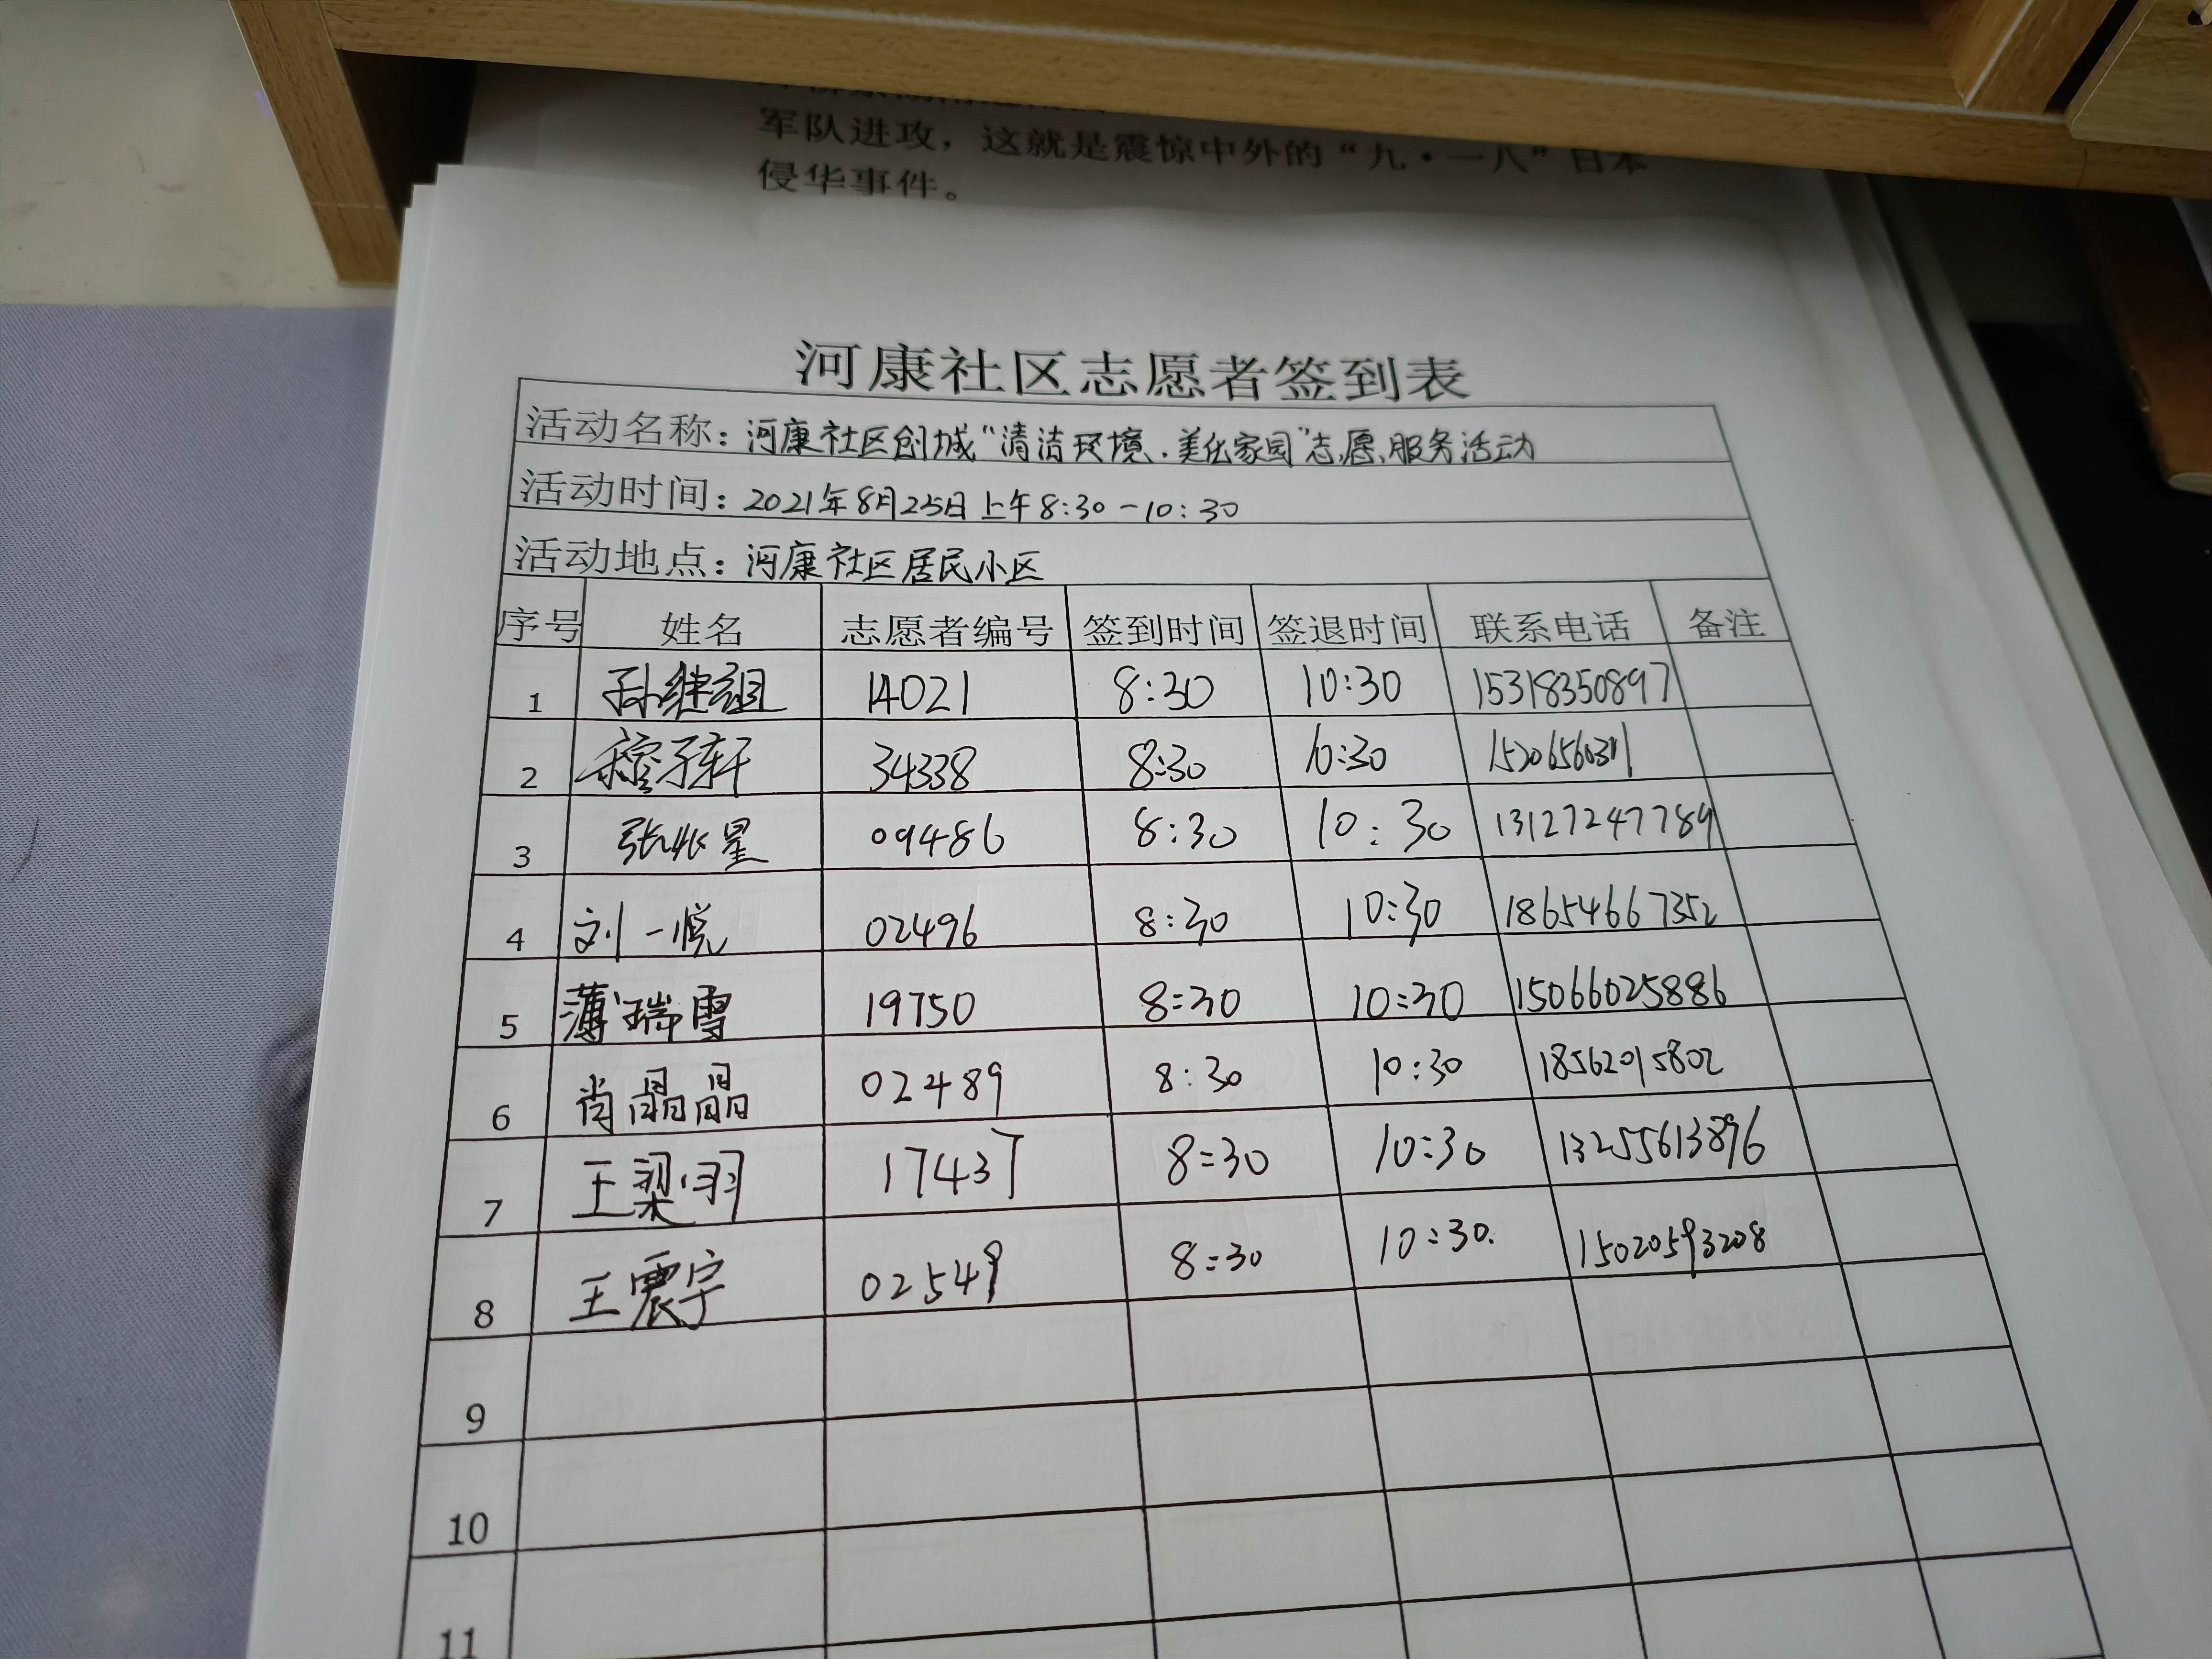 军队进攻，这就是震惊中外的“九·一八”日本
侵华事件。
河康社区志愿者签到表
活动名称：河康社区创城“清洁环境.美化家园”志愿服务活动
活动时间：2021年8月25日上午8:30-10:30
活动地点：河康社区居民小区
序号 姓名 志愿者编号 签到时间 签退时间 联系电话 备注
1 孙继祖 14021 8:30 10:30 15318350897
2 子轩 34338 8:30 10:30
3 张兆星 09486 8:30 10:30 13127247789
4 刘一悦 02496 8:30 10:30 18654667352
5 薄瑞雪 19750 8:30 10:30 15066025886
6 肖晶晶 02489 8:30 10:30 18562015802
7 王梁羽 17437 8:30 10:30 13255613896
8 王震宇 02549 8:30 10:30. 15020593208
9
10
11